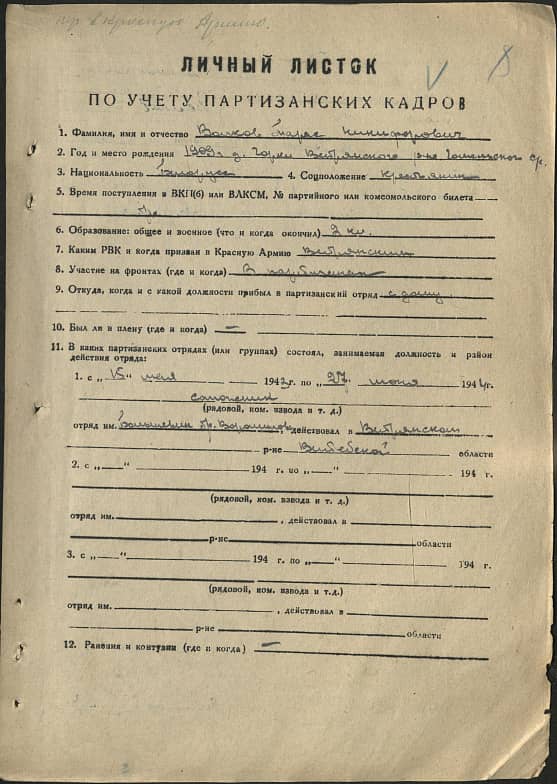 пр в Красную Армию.
8
ЛИЧНЫЙ ЛИСТОК
ПО УЧЕТУ ПАРТИЗАНСКИХ КАДРОВ
1. Фамилия, имя и отчество Волков Тарас Никифорович
2. Год и место рождения 1909 г. д. Горки Ветрянского р-на
3. Национальность Белорус 4. Соцположение Крестьянин
5. Время поступления в ВКП(б) или ВЛКСМ, № партийного или комсомольского билета
6. Образование: общее и военное (что и когда окончил) 2 кл.
7. Каким РВК и когда призван в Красную Армию Ветрянским
8. Участие на фронтах (где и когда) В партизанах
9. Откуда, когда и с какой должности прибыл в партизанский отряд с дому
10. Был ли в плену (где и когда) —
11. В каких партизанских отрядах (или группах) состоял, занимаемая должность и район
действия отряда:
1. с „15" мая 1942 г. по „27" июня 1944 г.
(рядовой, ком. взвода и т. д.)
отряд им. Большевик бр. Ворошилова, действовал в Ветрянском
р-не Витебской области
2. с „—" 194 г. по „—" 194 г.
(рядовой, ком. взвода и т. д.)
отряд им. , действовал в
р-не области
3. с „—" 194 г. по „—" 194 г.
(рядовой, ком. взвода и т.д.)
отряд им. , действовал в
р-не области
12. Ранения и контузии (где и когда) —